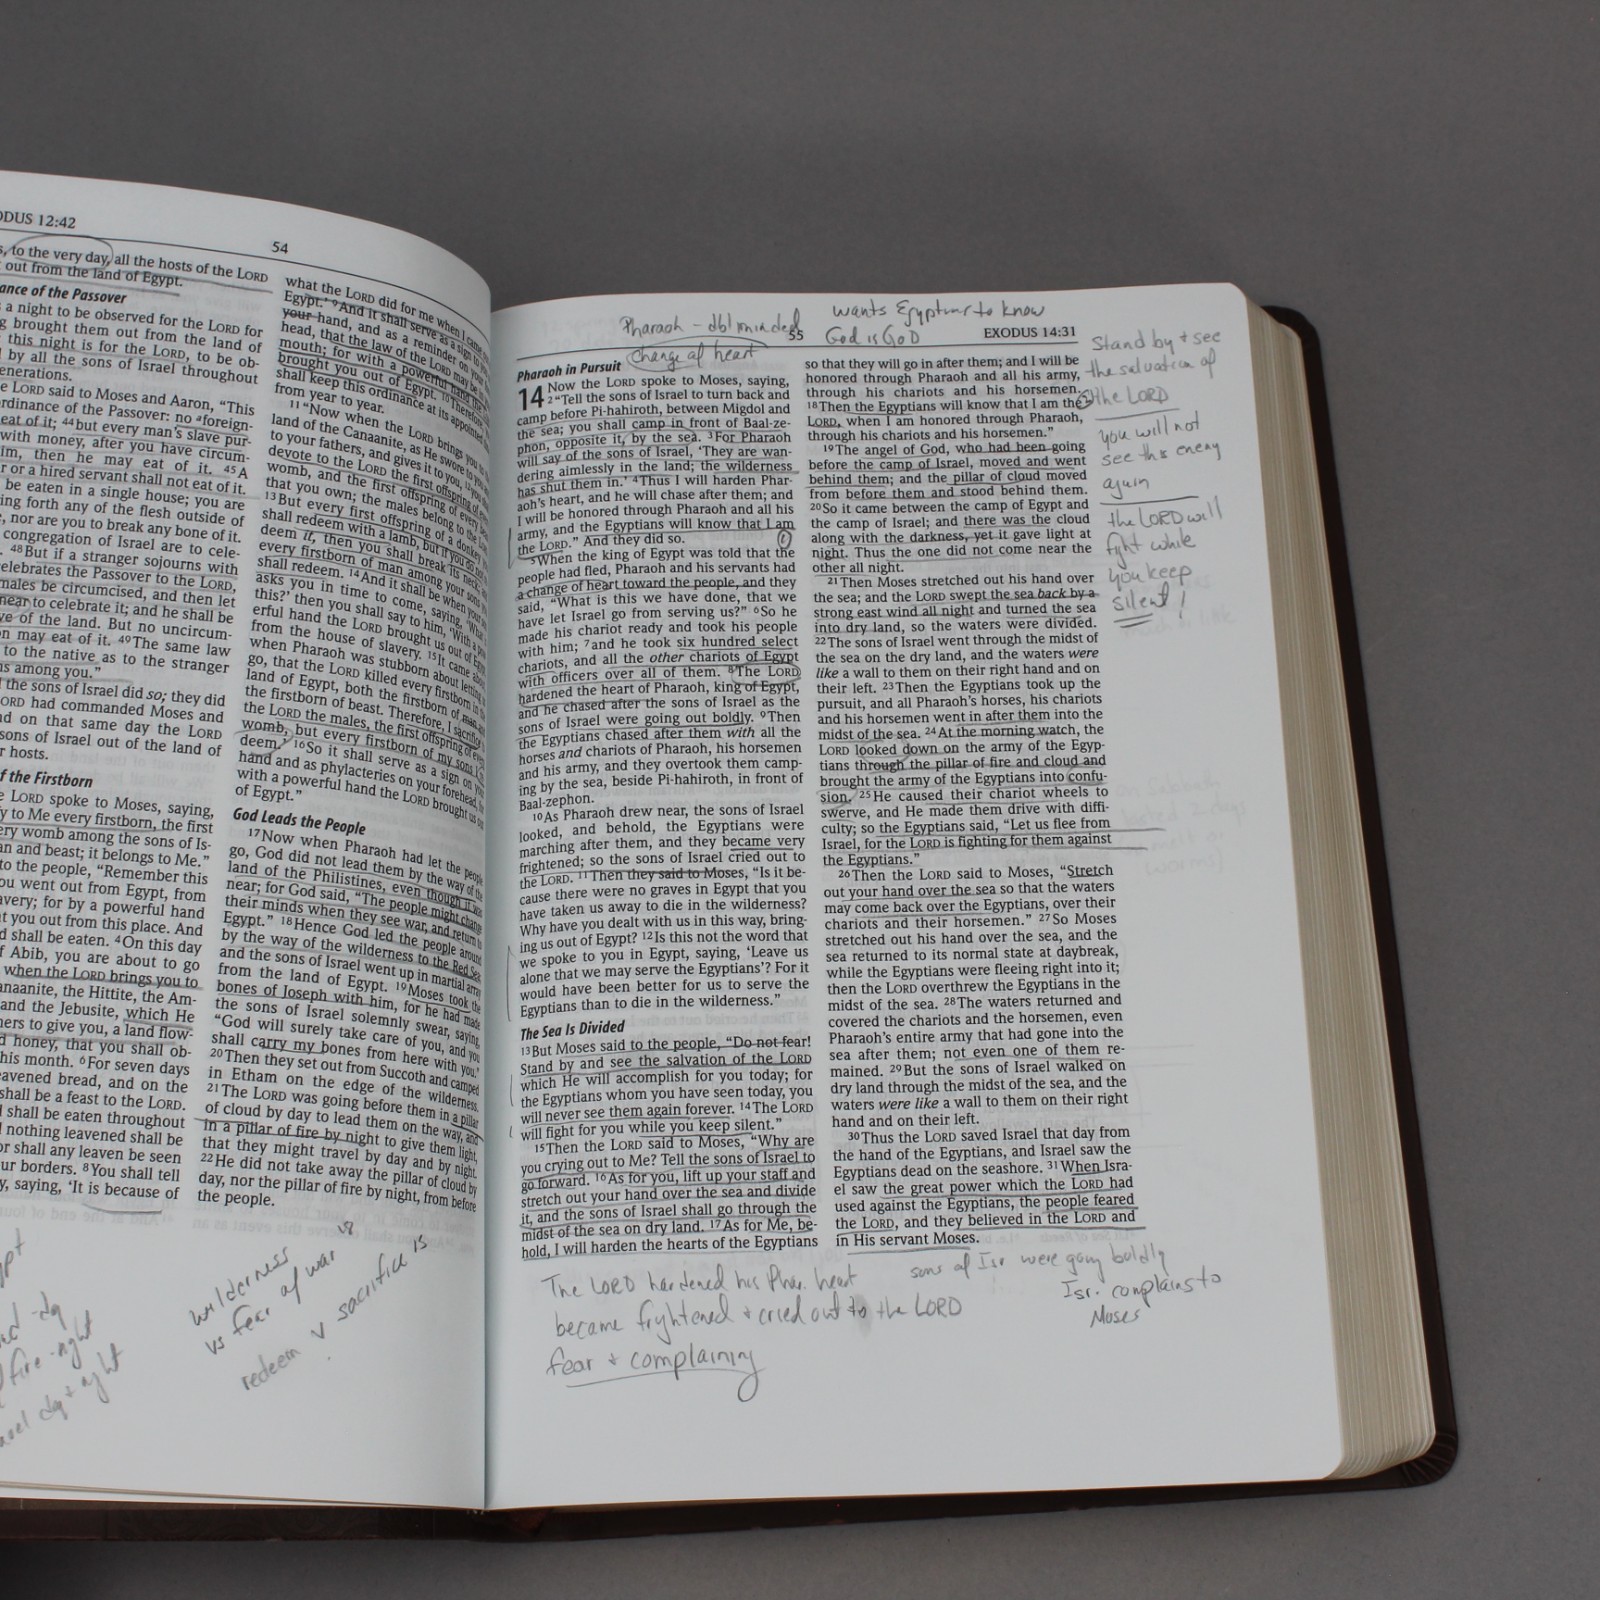 ODUS 12:42
54
to the very day, all the hosts of the LORD
out from the land of Egypt.
ance of the Passover
a night to be observed for the LORD for
brought them out from the land of
this night is for the LORD, to be ob-
by all the sons of Israel throughout
enerations.
LORD said to Moses and Aaron, "This
rdinance of the Passover: no ᵃforeign-
eat of it; 44but every man's slave pur-
with money, after you have circum-
im, then he may eat of it. 45A
r or a hired servant shall not eat of it.
be eaten in a single house; you are
ing forth any of the flesh outside of
, nor are you to break any bone of it.
congregation of Israel are to cele-
48But if a stranger sojourns with
elebrates the Passover to the LORD,
males be circumcised, and then let
near to celebrate it; and he shall be
ve of the land. But no uncircum-
n may eat of it. 49The same law
to the native as to the stranger
ns among you."
the sons of Israel did so; they did
ORD had commanded Moses and
nd on that same day the LORD
sons of Israel out of the land of
r hosts.
f the Firstborn
LORD spoke to Moses, saying,
y to Me every firstborn, the first
ery womb among the sons of Is-
an and beast; it belongs to Me."
to the people, "Remember this
ou went out from Egypt, from
avery; for by a powerful hand
t you out from this place. And
d shall be eaten. 4On this day
f Abib, you are about to go
when the LORD brings you to
anaanite, the Hittite, the Am-
and the Jebusite, which He
hers to give you, a land flow-
d honey, that you shall ob-
his month. 6For seven days
eavened bread, and on the
shall be a feast to the LORD.
shall be eaten throughout
nothing leavened shall be
or shall any leaven be seen
ur borders. 8You shall tell
y, saying, 'It is because of
what the LORD did for me when I came
Egypt.' 9And it shall serve as a sign to
your hand, and as a reminder on your
head, that the law of the LORD may be in
mouth; for with a powerful hand the
brought you out of Egypt. 10Therefore,
shall keep this ordinance at its appointed
from year to year.
11"Now when the LORD brings you to
land of the Canaanite, as He swore to you
to your fathers, and gives it to you, 12you
devote to the LORD the first offspring of every
womb, and the first offspring of every beast
that you own; the males belong to the LORD.
13But every first offspring of a donkey
shall redeem with a lamb, but if you do not
deem it, then you shall break its neck; and
every firstborn of man among your sons
shall redeem. 14And it shall be when your
asks you in time to come, saying, 'What
this?' then you shall say to him, 'With a
erful hand the LORD brought us out of Egypt,
from the house of slavery. 15It came about
when Pharaoh was stubborn about letting
go, that the LORD killed every firstborn in the
land of Egypt, both the firstborn of man and
the firstborn of beast. Therefore, I sacrifice
the LORD the males, the first offspring of every
womb, but every firstborn of my sons I
deem.' 16So it shall serve as a sign on your
hand and as phylacteries on your forehead, for
with a powerful hand the LORD brought us out
of Egypt."
God Leads the People
17Now when Pharaoh had let the people
go, God did not lead them by the way of the
land of the Philistines, even though it was
near; for God said, "The people might change
their minds when they see war, and return to
Egypt." 18Hence God led the people around
by the way of the wilderness to the Red Sea;
and the sons of Israel went up in martial array
from the land of Egypt. 19Moses took the
bones of Joseph with him, for he had made
the sons of Israel solemnly swear, saying,
"God will surely take care of you, and you
shall carry my bones from here with you."
20Then they set out from Succoth and camped
in Etham on the edge of the wilderness.
21The LORD was going before them in a pillar
of cloud by day to lead them on the way, and
in a pillar of fire by night to give them light,
that they might travel by day and by night.
22He did not take away the pillar of cloud by
day, nor the pillar of fire by night, from before
the people.
fire - night
day + night
wilderness
vs fear of war
redeem v sacrifice
Pharaoh - dbl minded
change of heart
wants Egyptians to know
God is GOD
55
EXODUS 14:31
Pharaoh in Pursuit
14 Now the LORD spoke to Moses, saying,
2"Tell the sons of Israel to turn back and
camp before Pi-hahiroth, between Migdol and
the sea; you shall camp in front of Baal-ze-
phon, opposite it, by the sea. 3For Pharaoh
will say of the sons of Israel, 'They are wan-
dering aimlessly in the land; the wilderness
has shut them in.' 4Thus I will harden Phar-
aoh's heart, and he will chase after them; and
I will be honored through Pharaoh and all his
army, and the Egyptians will know that I am
the LORD." And they did so.
5When the king of Egypt was told that the
people had fled, Pharaoh and his servants had
a change of heart toward the people, and they
said, "What is this we have done, that we
have let Israel go from serving us?" 6So he
made his chariot ready and took his people
with him; 7and he took six hundred select
chariots, and all the other chariots of Egypt
with officers over all of them. 8The LORD
hardened the heart of Pharaoh, king of Egypt,
and he chased after the sons of Israel as the
sons of Israel were going out boldly. 9Then
the Egyptians chased after them with all the
horses and chariots of Pharaoh, his horsemen
and his army, and they overtook them camp-
ing by the sea, beside Pi-hahiroth, in front of
Baal-zephon.
10As Pharaoh drew near, the sons of Israel
looked, and behold, the Egyptians were
marching after them, and they became very
frightened; so the sons of Israel cried out to
the LORD. 11Then they said to Moses, "Is it be-
cause there were no graves in Egypt that you
have taken us away to die in the wilderness?
Why have you dealt with us in this way, bring-
ing us out of Egypt? 12Is this not the word that
we spoke to you in Egypt, saying, 'Leave us
alone that we may serve the Egyptians'? For it
would have been better for us to serve the
Egyptians than to die in the wilderness."
The Sea Is Divided
13But Moses said to the people, "Do not fear!
Stand by and see the salvation of the LORD
which He will accomplish for you today; for
the Egyptians whom you have seen today, you
will never see them again forever. 14The LORD
will fight for you while you keep silent."
15Then the LORD said to Moses, "Why are
you crying out to Me? Tell the sons of Israel to
go forward. 16As for you, lift up your staff and
stretch out your hand over the sea and divide
it, and the sons of Israel shall go through the
midst of the sea on dry land. 17As for Me, be-
hold, I will harden the hearts of the Egyptians
so that they will go in after them; and I will be
honored through Pharaoh and all his army,
through his chariots and his horsemen.
18Then the Egyptians will know that I am the
LORD, when I am honored through Pharaoh,
through his chariots and his horsemen."
19The angel of God, who had been going
before the camp of Israel, moved and went
behind them; and the pillar of cloud moved
from before them and stood behind them.
20So it came between the camp of Egypt and
the camp of Israel; and there was the cloud
along with the darkness, yet it gave light at
night. Thus the one did not come near the
other all night.
21Then Moses stretched out his hand over
the sea; and the LORD swept the sea back by a
strong east wind all night and turned the sea
into dry land, so the waters were divided.
22The sons of Israel went through the midst of
the sea on the dry land, and the waters were
like a wall to them on their right hand and on
their left. 23Then the Egyptians took up the
pursuit, and all Pharaoh's horses, his chariots
and his horsemen went in after them into the
midst of the sea. 24At the morning watch, the
LORD looked down on the army of the Egyp-
tians through the pillar of fire and cloud and
brought the army of the Egyptians into confu-
sion. 25He caused their chariot wheels to
swerve, and He made them drive with diffi-
culty; so the Egyptians said, "Let us flee from
Israel, for the LORD is fighting for them against
the Egyptians."
26Then the LORD said to Moses, "Stretch
out your hand over the sea so that the waters
may come back over the Egyptians, over their
chariots and their horsemen." 27So Moses
stretched out his hand over the sea, and the
sea returned to its normal state at daybreak,
while the Egyptians were fleeing right into it;
then the LORD overthrew the Egyptians in the
midst of the sea. 28The waters returned and
covered the chariots and the horsemen, even
Pharaoh's entire army that had gone into the
sea after them; not even one of them re-
mained. 29But the sons of Israel walked on
dry land through the midst of the sea, and the
waters were like a wall to them on their right
hand and on their left.
30Thus the LORD saved Israel that day from
the hand of the Egyptians, and Israel saw the
Egyptians dead on the seashore. 31When Isra-
el saw the great power which the LORD had
used against the Egyptians, the people feared
the LORD, and they believed in the LORD and
in His servant Moses.
Stand by + see
the salvation of
the LORD
you will not
see this enemy
again
the LORD will
fight while
you keep
silent!
The LORD hardened his Phar. heart
became frightened + cried out to the LORD
fear + complaining
sons of Isr were going boldly
Isr. complains to
Moses